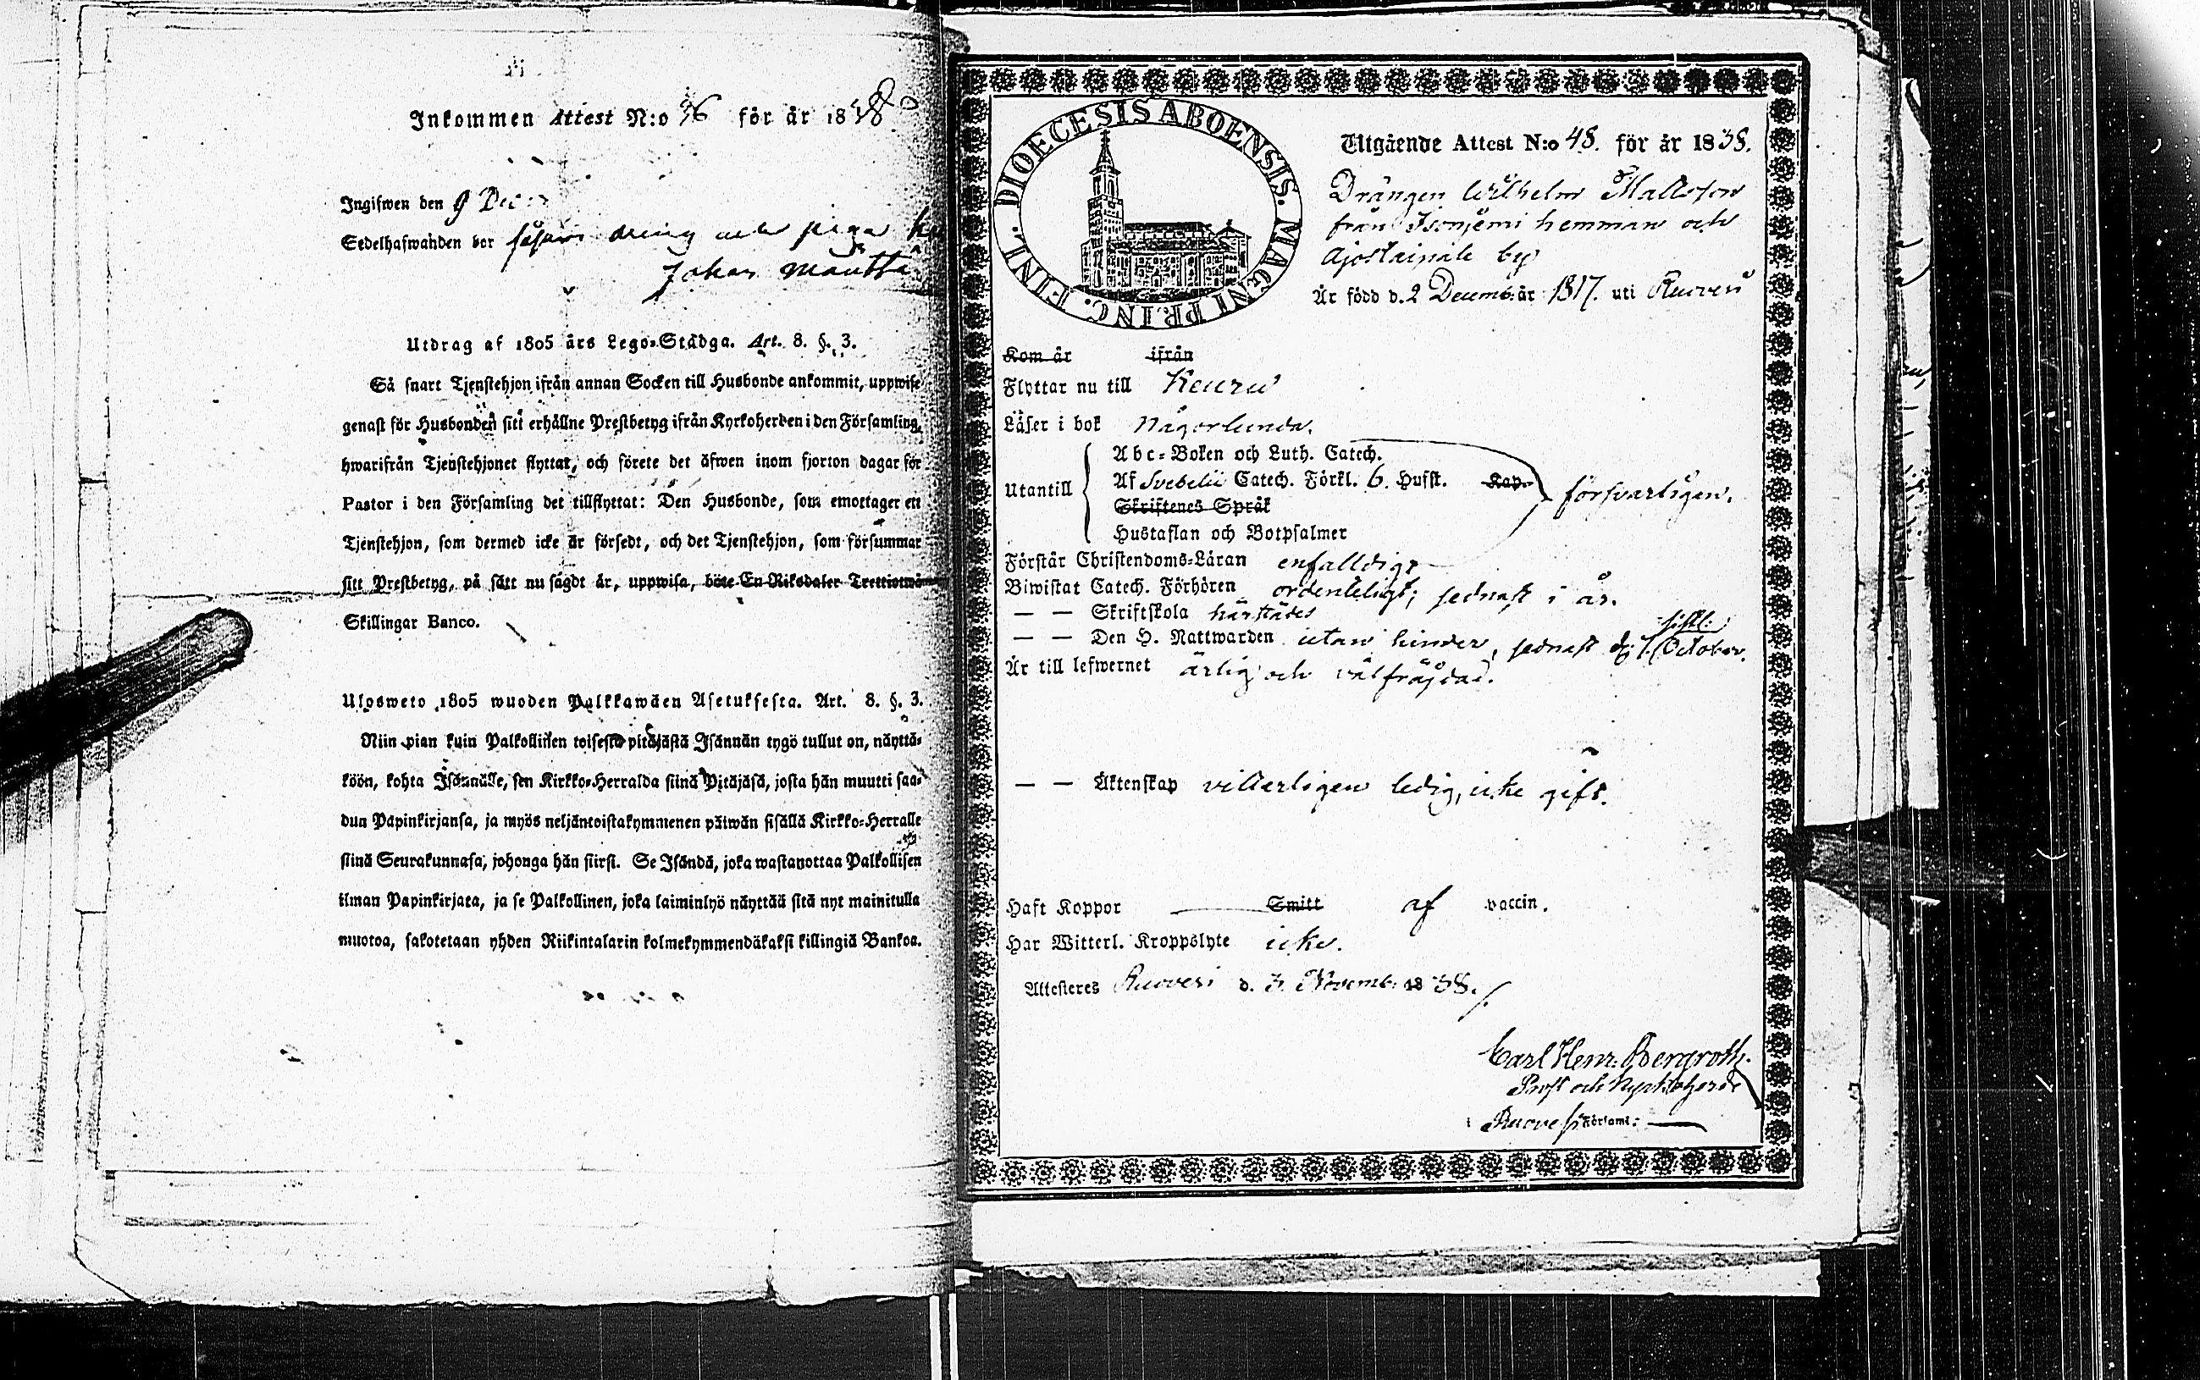 Inkommen Attest N:o 36 för år 1838
Ingifwen den 9 Dec:
Sedelhafwanden bor såsom dreng
Johan
Utdrag af 1805 års Lego-Stadga. Art. 8. §. 3.
Så snart Tjenstehjon ifrån annan Socken till Husbonde ankommit, uppwise
genast för Husbonden sitt erhållne Prestbetyg ifrån Kyrkoherden i den Församling,
hwarifrån Tjenstehjonet flyttat, och förete det äfwen inom fjorton dagar för
Pastor i den Församling det tillflyttat: Den Husbonde, som emottager ett
Tjenstehjon, som dermed icke är försedt, och det Tjenstehjon, som försummar
sitt Prestbetyg, på sätt nu sagdt är, uppwisa, böte En Riksdaler Trettiotwå
Skillingar Banco.
Ulosweto 1805 wuoden Palkkawäen Asetuksesta. Art. 8. §. 3.
Niin pian kuin Palkollinen toisesta pitäjästä Isännän tygö tullut on, näyttä-
köön, kohta Isännälle, sen Kirkko-Herralda siinä Pitäjäsä, josta hän muutti saa-
dun Papinkirjansa, ja myös neljäntoistakymmenen päiwän sisällä Kirkko-Herralle
siinä Seurakunnasa, johonga hän siirsi. Se Isändä, joka wastanottaa Palkollisen
ilman Papinkirjata, ja se Palkollinen, joka laiminlyö näyttää sitä nyt mainitulla
muotoa, sakotetaan yhden Riikintalarin kolmekymmendäkaksi killingiä Bankoa.
DIOECESIS ABOENSIS. MAGNI PRINC. FINL.
Utgående Attest N:o 48. för år 1838.
Drängen Wilhelm Mattsson
från Isoniemi hemman och
by
Är född d. 2 Decemb. år 1817. uti Ruovesi
Kom år ifrån
Flyttar nu till Keuru
Läser i bok någorlunda.
Utantill
Abc-Boken och Luth. Catech.
Af Svebelii Catech. Förkl. 6. Hufst. Kap. försvarligen.
Skriftenes Språk
Hustaflan och Botpsalmer
Förstår Christendoms-Läran enfalldigt
Biwistat Catech. Förhören ordenteligt; sednast i år.
— — Skriftskola härstädes
— — Den H. Nattwarden utan hinder, sednast d. 7 sistl: October.
Är till lefwernet ärlig och välfräjdad.
— — Äktenskap vitterligen ledig, icke gift.
Haft Koppor Smitt af vaccin.
Har Witterl. Kroppslyte icke.
Attesteres Ruovesi d. 3. Novemb. 1838.
Carl Henr. Bergroth.
Prost och Kyrkoherde
i Ruovesi Församl: